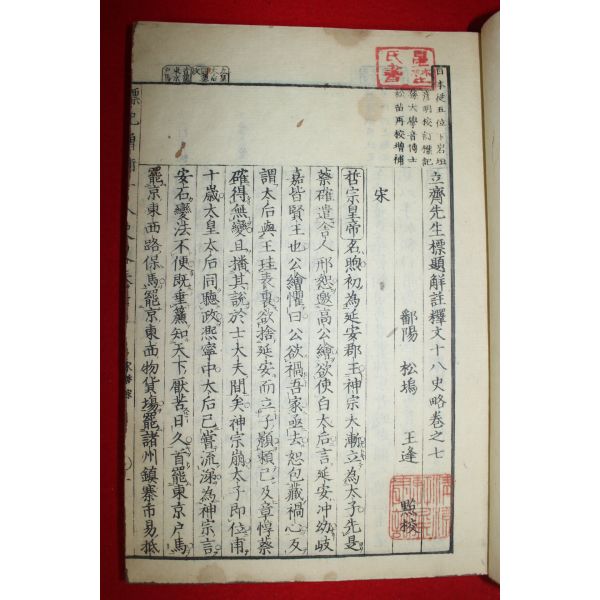 立齋先生標題解註釋文十八史略卷之七
鄱陽 松塢 王逢 點校
宋
哲宗皇帝名煦初為延安郡王神宗大漸立為太子先是
蔡確遣舍人邢恕邀高公繪欲使白太后言延安冲幼岐
嘉皆賢王也公繪懼曰公欲禍吾家亟去恕包藏禍心反
謂太后與王珪表裏欲捨延安而立子顥賴己及章惇蔡
確得無變且播其說於士大夫間矣神宗崩太子即位甫
十歲太皇太后同聽政熙寧中太后已嘗流涕為神宗言
安石變法不便既垂簾知天下厭苦日久首罷東京戶馬
罷京東西路保馬罷京東西物貨場罷諸州鎮寨市易抵